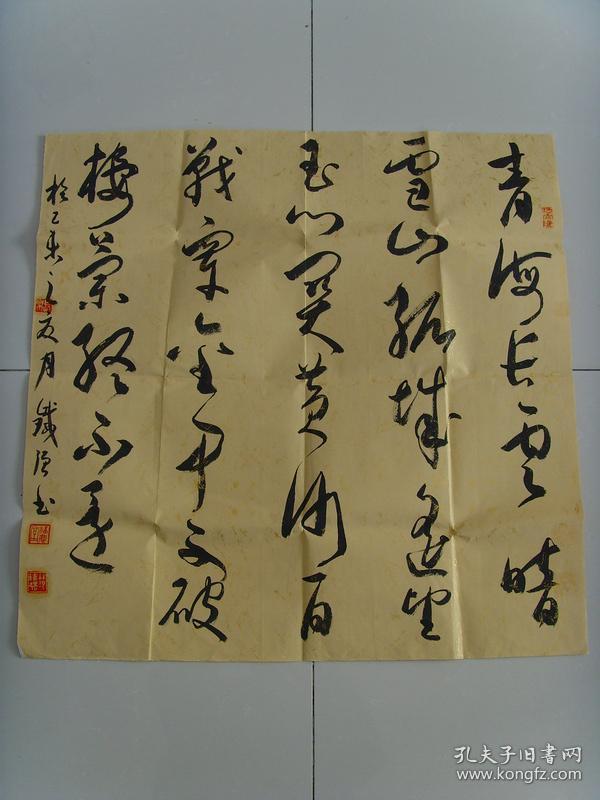 青海长雲暗
雪山孤城遥望
玉门関黄沙百
戰穿金甲不破
樓蘭終不還
之夏月鐵书
孔夫子旧书网
www.kongfz.com